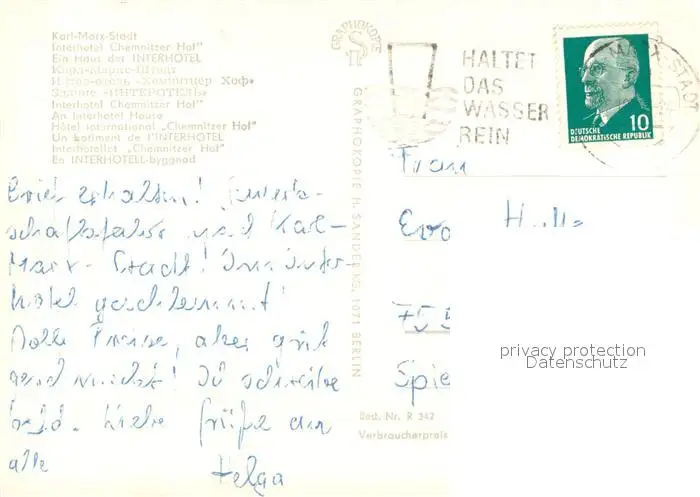 Karl-Marx-Stadt
Interhotel Chemnitzer Hof"
Ein Haus der INTERHOTEL
Карл-Маркс-Штадт
Интер-отель «Хемнитцер Хоф»
Здание «ИНТЕРОТЕЛЬ»
Interhotel Chemnitzer Hof"
An Interhotel House
Hôtel international „Chemnitzer Hof"
Un batiment de l'INTERHOTEL
Interhotellet „Chemnitzer Hof"
En INTERHOTELL-byggnad
GRAPHOKOPIE
GRAPHOKOPIE H. SANDER KG, 1071 BERLIN
HALTET
DAS
WASSER
REIN
MARX-STADT
10
DEUTSCHE
DEMOKRATISCHE REPUBLIK
Brief erhalten!
und Karl-
Marx-Stadt! Im Inter-
hotel
Tolle Preise, aber gut
Ich schreibe
bald. Liebe Grüße an
alle Helga
Frau
Eva H
75
Spre
Best. Nr. R 342
Verbraucherpreis
privacy protection
Datenschutz